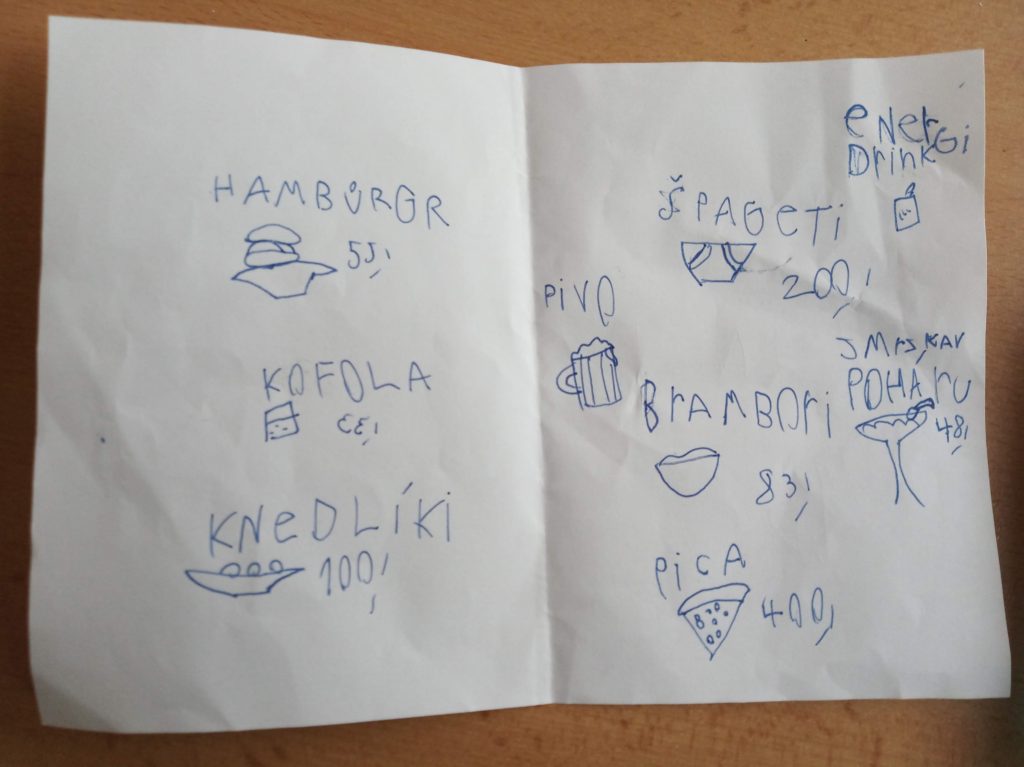 HAMBŮRGR
55,
KOFOLA
33,
KNeDLÍKi
100,
eNerGi
Drink
ŠPAGeTi
200,
PiVO
BrAMBOri
83,
JMrSKAr
POHÁrU
48,
PiCA
400,